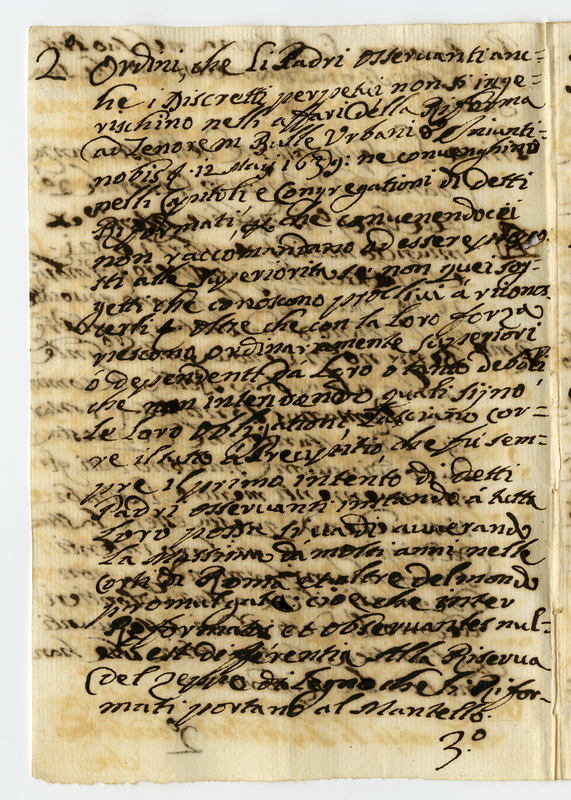 2.º Ordini, che li Padri Osservanti anc=
he i Discretti perpetui non s'inge=
rischino nelli affari della Riforma
ad Tenorem Bulle Urbani 8.
nobis q. 12 Maij 1639: ne convenghino
nelli Capitoli e Congregationi di detti
Riformati, che convenendoci
non raccomandano ad essere
tti alle Superiorita se non quei sog=
getti che conoscono proclivi á
che con la loro forza
riescono ordinariamente Superiori
ó dependenti da loro ó tanto deboli
che non intendendo quali sijno
le loro obligationi, lasciano cor=
re il tutto al Precipitio, che fu sem=
pre il primo intento di detti
Padri Osservanti á tutta
loro possa avverando
la Massima da molti anni nelle
Corti di Roma et altre del mondo
promulgata; cioe che inter
Reformatos et Observantes nul=
la est differentia alla Riserva
del Zeppo di Legno che li Rifor=
mati portano al Mantello.
3.º